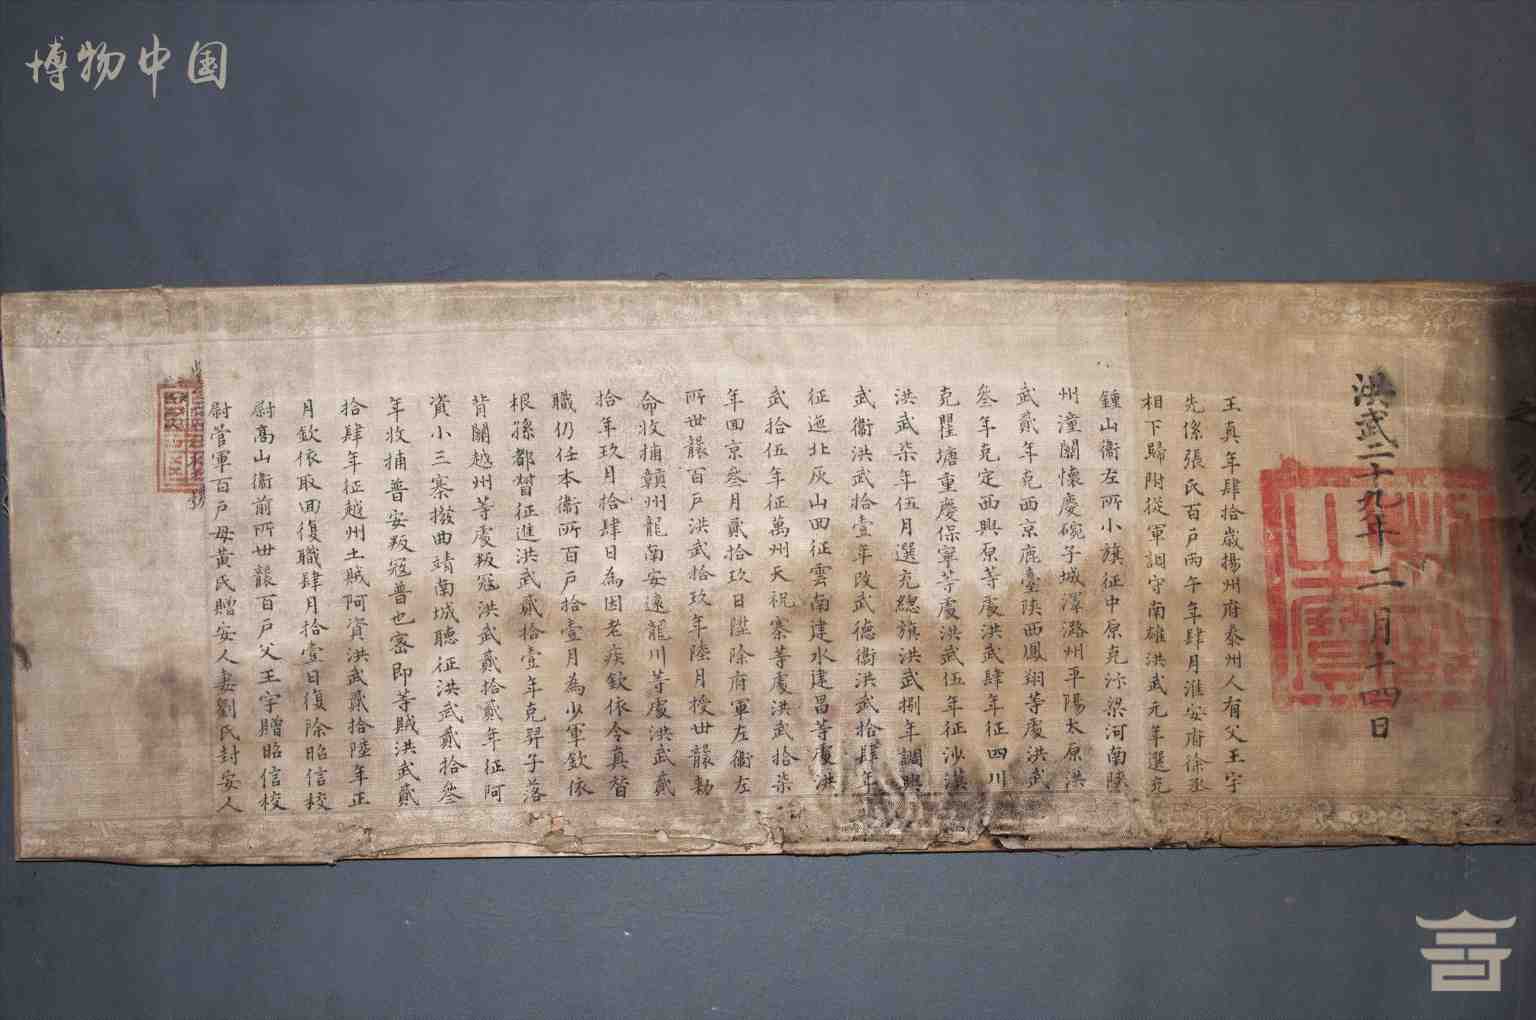 博物中国
洪武二十九年二月十四日
王真年肆拾歲揚州府泰州人有父王宇
先係張氏百戶丙午年肆月淮安府徐丞
相下歸附從軍調守南雄洪武元年選充
鍾山衛左所小旗征中原克汴梁河南陝
州潼關懷慶碗子城澤潞州平陽太原洪
武貳年克西京鹿臺陝西鳳翔等處洪武
叁年克定西興原等處洪武肆年征四川
克瞿塘重慶保寧等處洪武伍年征沙漠
洪武柒年伍月選充總旗洪武捌年調興
武衛洪武拾壹年改武德衛洪武拾肆年
征迤北灰山回征雲南建水建昌等處洪
武拾伍年征萬州天祝寨等處洪武拾柒
年回京叁月貳拾玖日陞除府軍左衛左
所世襲百戶洪武拾玖年陸月授世襲勅
命收捕贛州龍南安遠龍川等處洪武貳
拾年玖月拾肆日為因老疾欽依令真替
職仍任本衛所百戶拾壹月為少軍欽依
根孫都督征進洪武貳拾壹年克羿子落
背關越州等處叛寇洪武貳拾貳年征阿
資小三寨撥曲靖南城聽征洪武貳拾叁
年收捕普安叛寇普也密即等賊洪武貳
拾肆年征越州土賊阿資洪武貳拾陸年正
月欽依取回復職肆月拾壹日復除昭信校
尉高山衛前所世襲百戶父王宇贈昭信校
尉管軍百戶母黃氏贈安人妻劉氏封安人